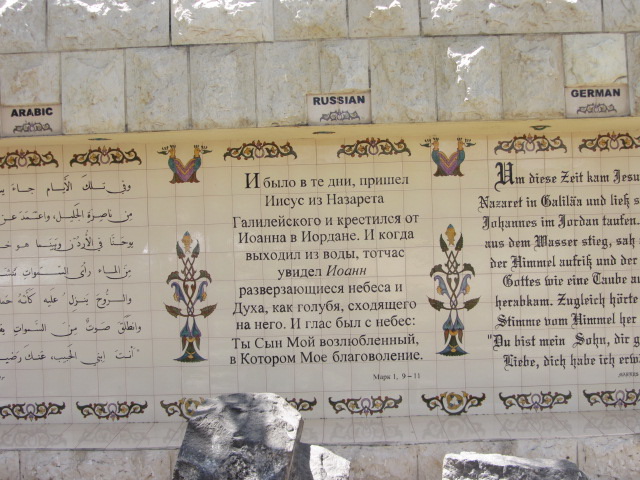 ARABIC
وفي تلك الأيام جاء
من ناصرة الجليل، واعتمد عن
يوحنا في الأردن وبينما هو
من الماء رأى السموات
والروح ينزل عليه كأنه
وانطلق صوت من السموات
أنت ابني الحبيب، عنك
RUSSIAN
И было в те дни, пришел
Иисус из Назарета
Галилейского и крестился от
Иоанна в Иордане. И когда
выходил из воды, тотчас
увидел Иоанн
разверзающиеся небеса и
Духа, как голубя, сходящего
на него. И глас был с небес:
Ты Сын Мой возлюбленный,
в Котором Мое благоволение.
Марк 1, 9-11
GERMAN
Um diese Zeit kam Jesu
Nazaret in Galiläa und ließ s
Johannes im Jordan taufen.
aus dem Wasser stieg, sah
der Himmel aufriß und der
Gottes wie eine Taube au
herabkam. Zugleich hörte
Stimme vom Himmel her
"Du bist mein Sohn, dir g
Liebe, dich habe ich erw